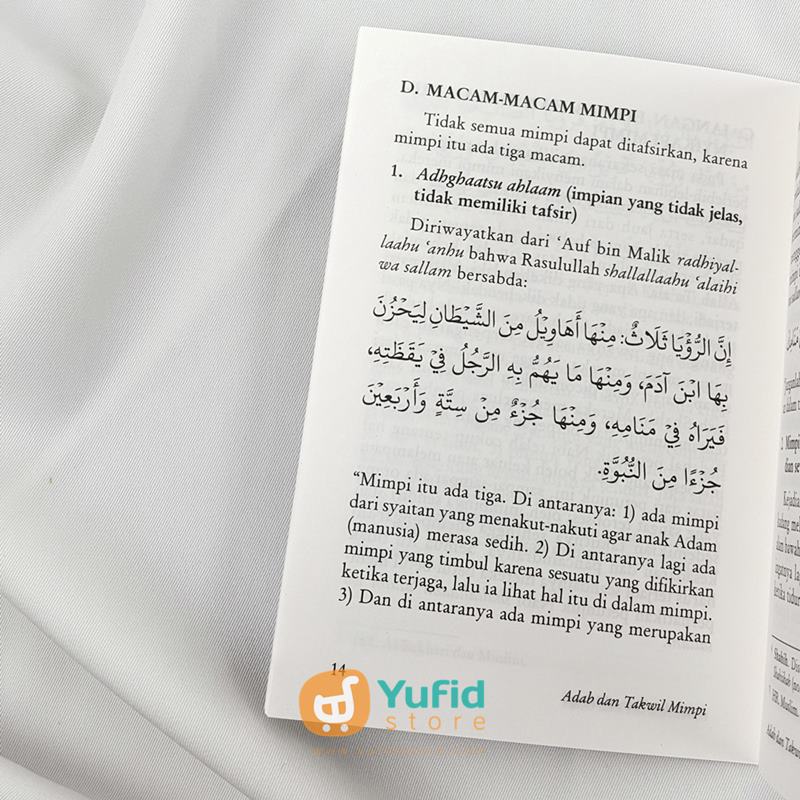 D. MACAM-MACAM MIMPI
Tidak semua mimpi dapat ditafsirkan, karena
mimpi itu ada tiga macam.
1. Adhghaatsu ahlaam (impian yang tidak jelas,
tidak memiliki tafsir)
Diriwayatkan dari ‘Auf bin Malik radhiyal-
laahu ‘anhu bahwa Rasulullah shallallaahu ‘alaihi
wa sallam bersabda:
إِنَّ الرُّؤْيَا ثَلَاثٌ: مِنْهَا أَهَاوِيْلُ مِنَ الشَّيْطَانِ لِيَحْزُنَ
بِهَا ابْنَ آدَمَ، وَمِنْهَا مَا يَهُمُّ بِهِ الرَّجُلُ فِيْ يَقَظَتِهِ،
فَيَرَاهُ فِيْ مَنَامِهِ، وَمِنْهَا جُزْءٌ مِنْ سِتَّةٍ وَأَرْبَعِيْنَ
جُزْءًا مِنَ النُّبُوَّةِ.
“Mimpi itu ada tiga. Di antaranya: 1) ada mimpi
dari syaitan yang menakut-nakuti agar anak Adam
(manusia) merasa sedih. 2) Di antaranya lagi ada
mimpi yang timbul karena sesuatu yang difikirkan
ketika terjaga, lalu ia lihat hal itu di dalam mimpi.
3) Dan di antaranya ada mimpi yang merupakan
14
Adab dan Takwil Mimpi
Yufid
store
2. Mimpi
Kejadia
HR. Muslim.